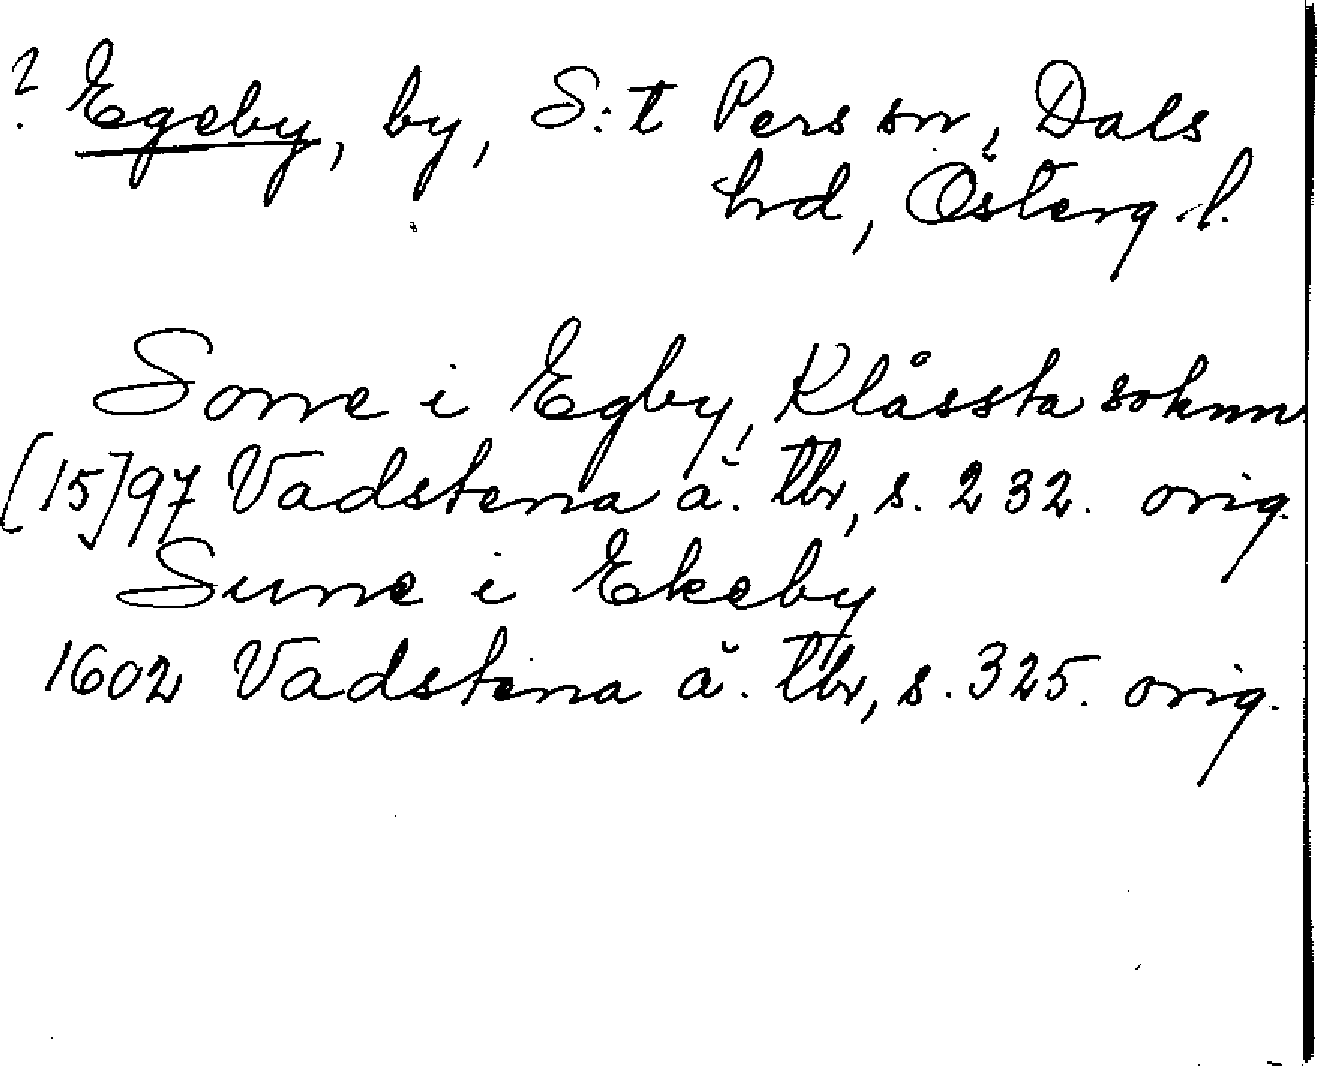 ? Egeby, by, S:t Pers sn, Dals
hrd, Östergl.
Sone i Egby, Klåssta soknn
[15]97 Vadstena ä. tbr, s. 232. orig.
Sune i Ekeby
1602 Vadstena ä. tbr, s. 325. orig.